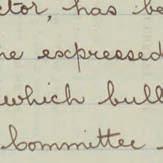 ctor, has be
re expressed
which bull
Committee